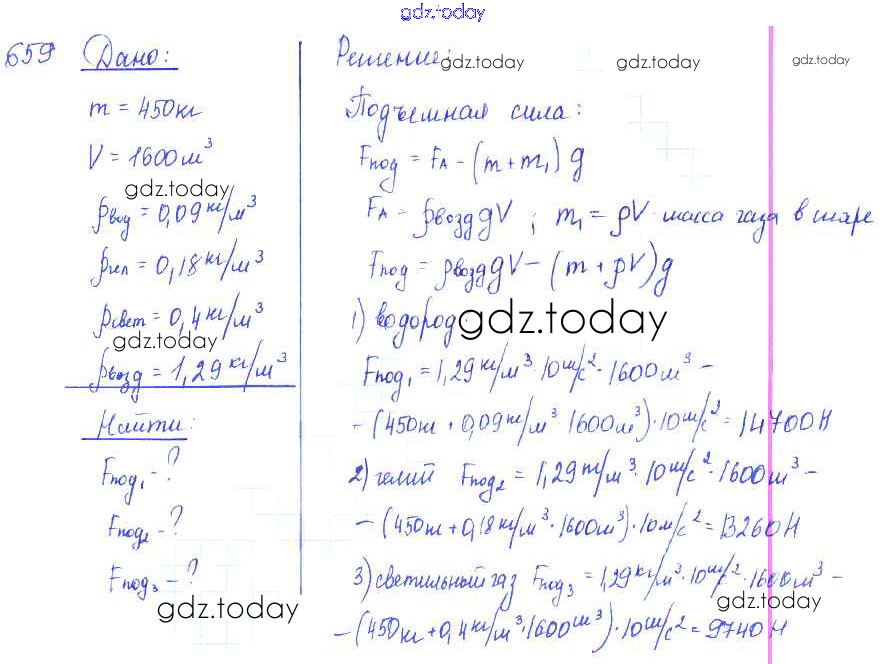 gdz.today
659 Дано:
m = 450 кг
V = 1600 м³
gdz.today
ρвод = 0,09 кг/м³
ρгел = 0,18 кг/м³
ρсвет = 0,4 кг/м³
gdz.today
ρвозд = 1,29 кг/м³
Найти:
Fпод₁ - ?
Fпод₂ - ?
Fпод₃ - ?
gdz.today
Решение:
gdz.today gdz.today gdz.today
Подъемная сила:
Fпод = FА - (m + m₁) g
FА = ρвозд gV ; m₁ = ρV - масса газа в шаре
Fпод = ρвозд gV - (m + ρV) g
1) водород
gdz.today
Fпод₁ = 1,29 кг/м³ · 10 м/с² · 1600 м³ -
- (450 кг + 0,09 кг/м³ · 1600 м³) · 10 м/с² = 14700 Н
2) гелий Fпод₂ = 1,29 кг/м³ · 10 м/с² · 1600 м³ -
- (450 кг + 0,18 кг/м³ · 1600 м³) · 10 м/с² = 13260 Н
3) светильный газ Fпод₃ = 1,29 кг/м³ · 10 м/с² · 1600 м³ -
gdz.today
- (450 кг + 0,4 кг/м³ · 1600 м³) · 10 м/с² = 9740 Н